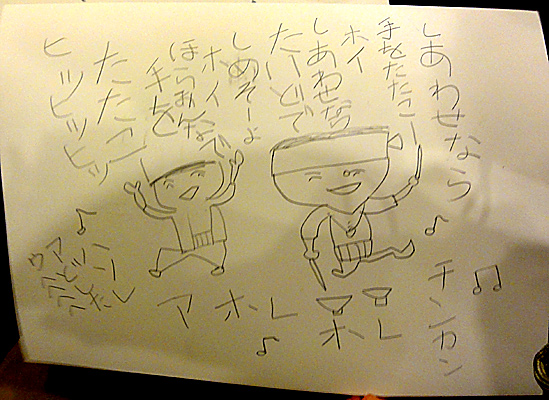 しあわせなら
手をたたこー
ホイ
しあわせなら
たいどで
しめそーよ
ホイ
ほらみんなで
手を
たたこー
ヒッヒッヒッ
チンカン
ホレ
ホレ
ア